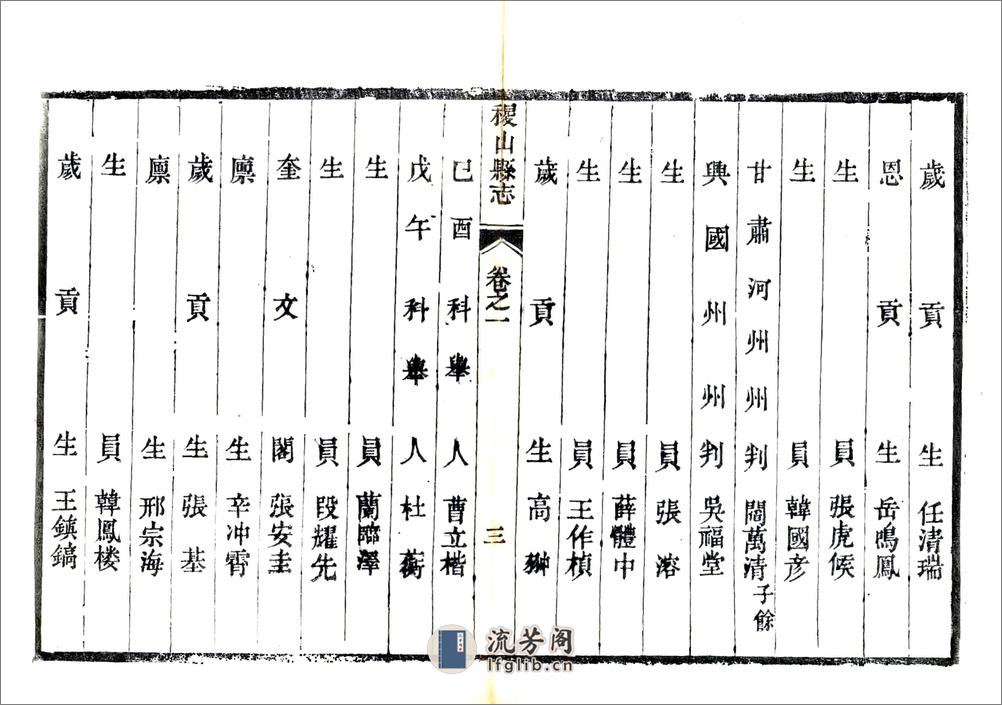 歲貢生任清瑞
恩貢生岳鳴鳳
生員張虎候
生員韓國彥
甘肅河州州判閻萬清子餘
興國州州判吳福堂
生員張溶
生員薛體中
生員王作楨
歲貢生高翀
稷山縣志 卷之一 三
己酉科舉人曹立楷
戊午科舉人杜蘅
生員蘭臨澤
生員段耀先
奎文閣張安圭
廩生辛冲霄
歲貢生張基
廩生邢宗海
生員韓鳳楼
歲貢生王鎮鎬
流芳阁
lfglib.cn